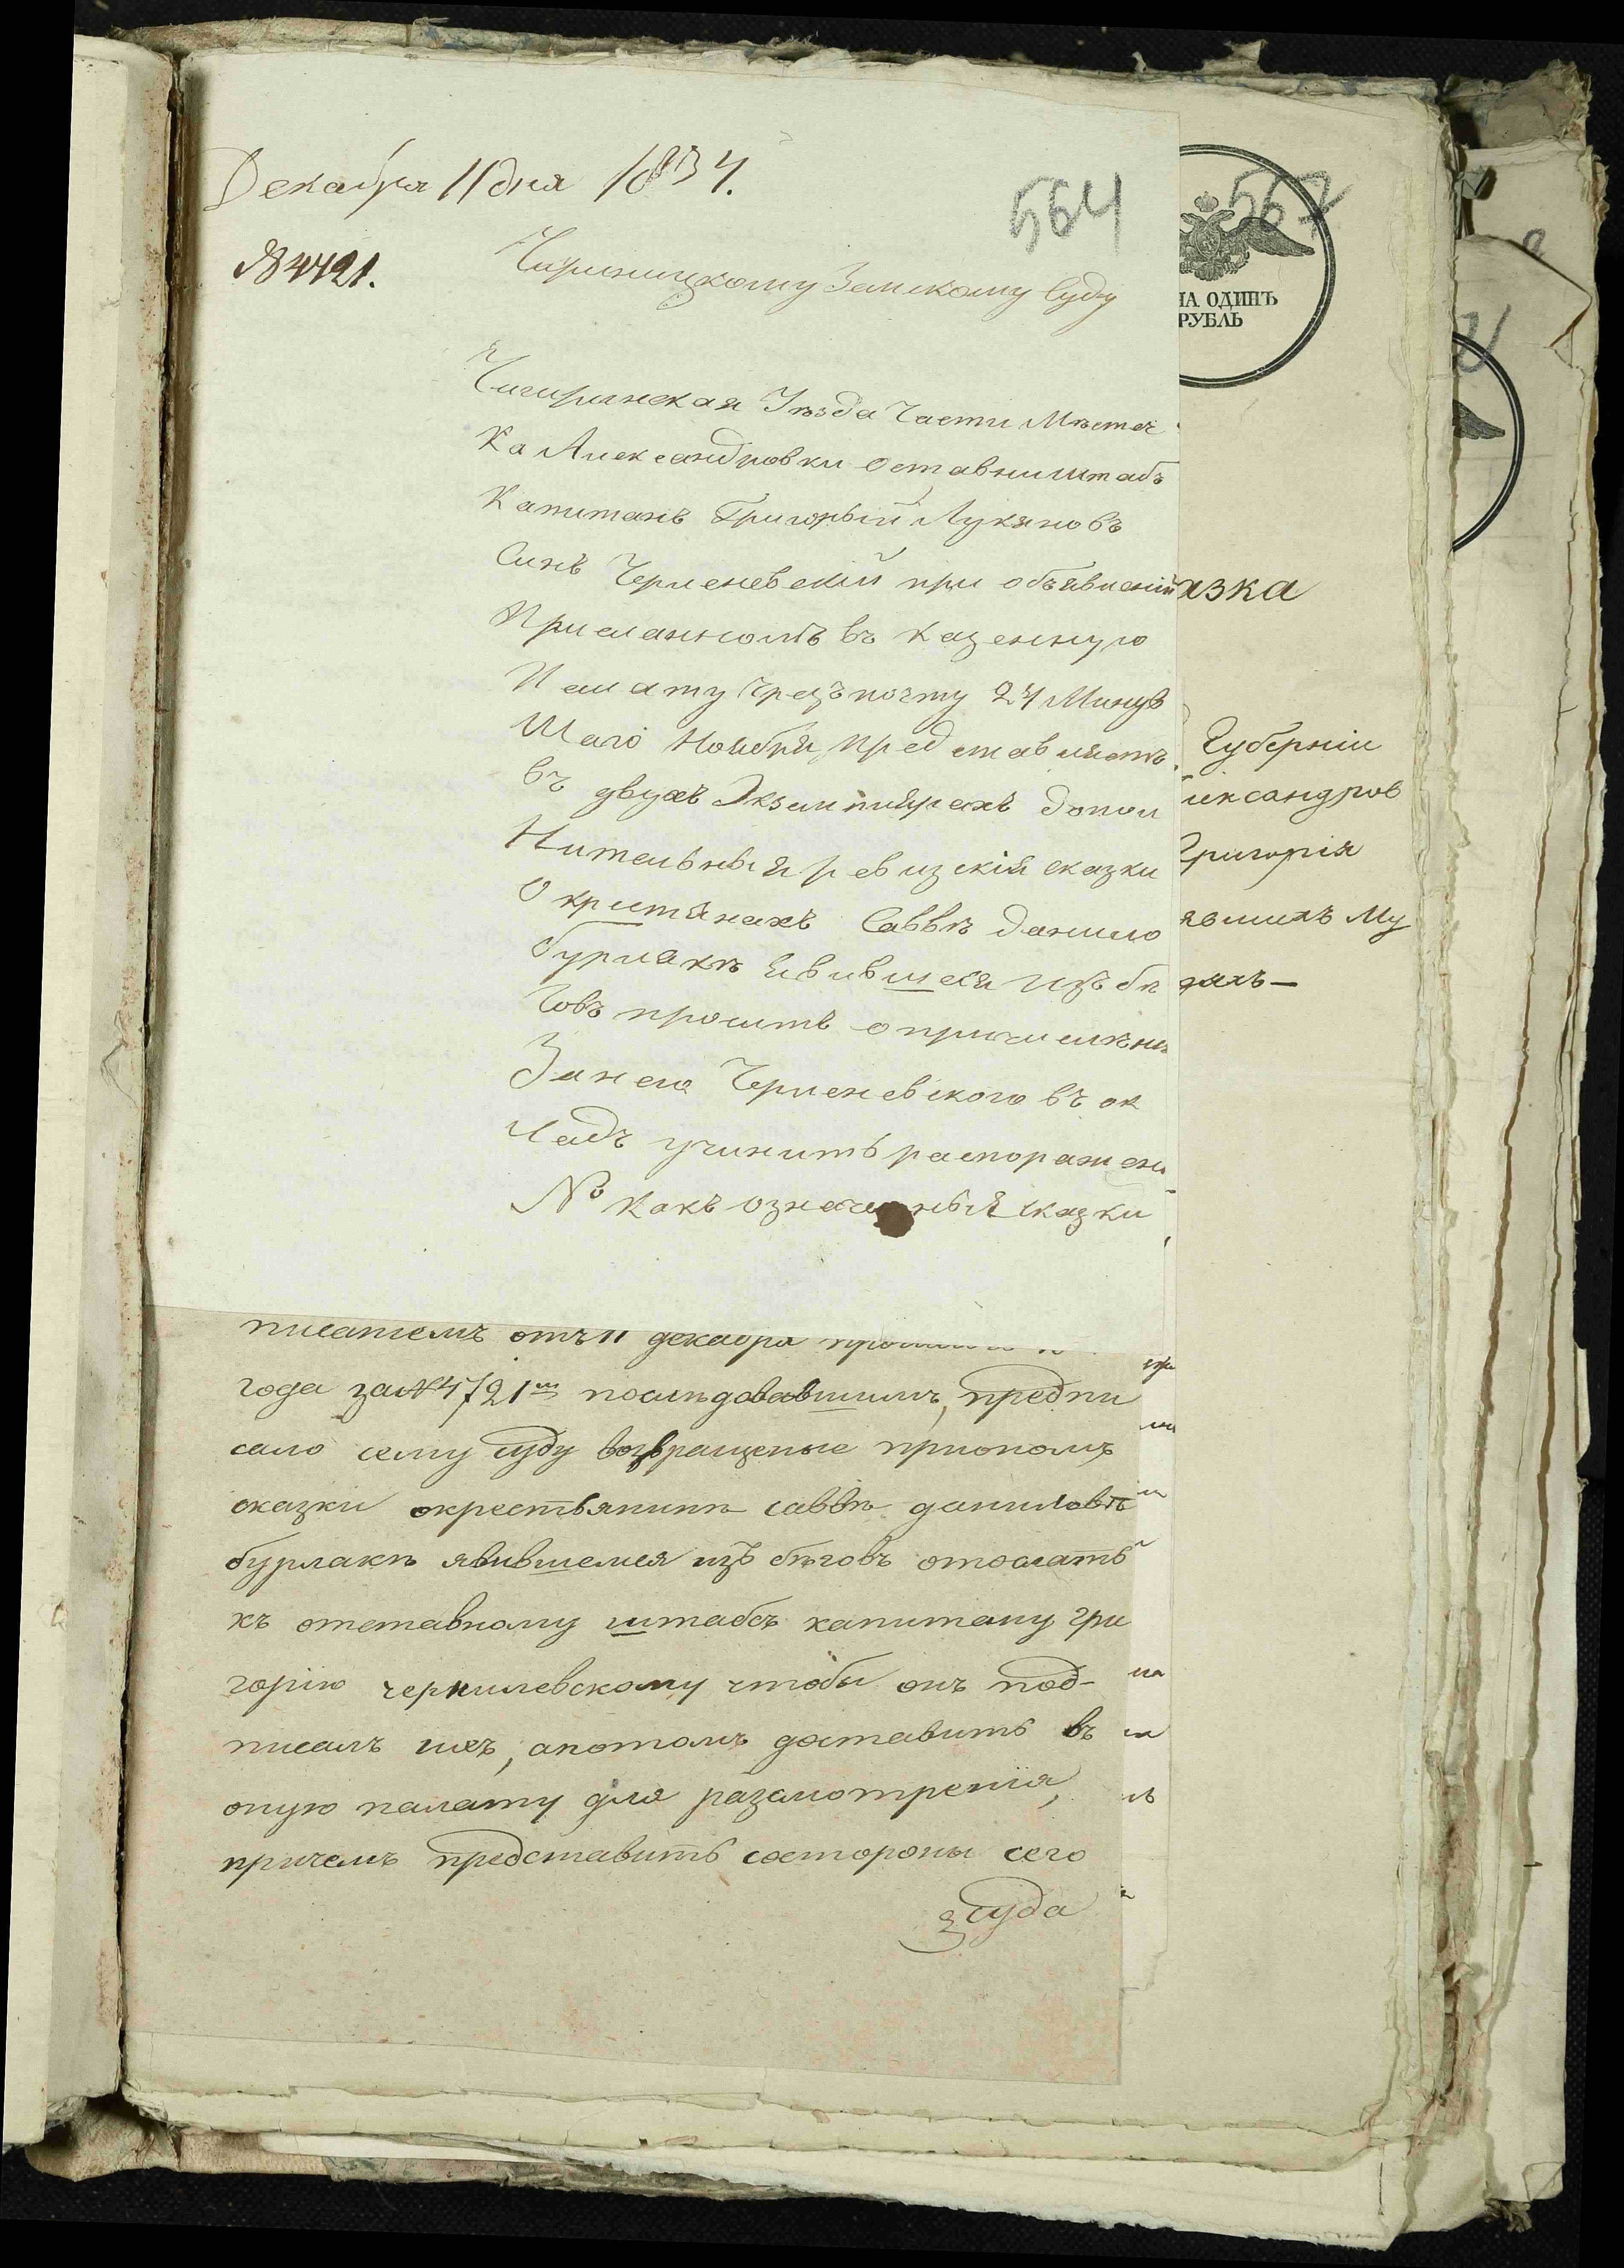 Декабря 11 дня 1834.
564
567
№ 4721.
Чигиринскому Земскому Суду
НА ОДИНЪ
РУБЛЬ
Чигиринская Уезда Части Местеч
Ка Александровки Оставни штабъ
Капитанъ Григорый Лукяновъ
Синъ Черменевский при объявлении
Присланномъ въ Казенную
Палату Чрезъ почту 24 Минув
Шаго Ноября, представляетъ
въ двухъ Экземплярахъ допол
Нительныя ревизския сказки
О кристянахъ Саввѣ данило
бурлакѣ явившися изъ бѣ
говъ проситъ о причислѣни
За него Черменевского въ ок
ладъ учинить распоряжени
Но какъ означенныя сказки
азка
Губернии
лександров
Григория
явших Му
душъ—
писателъ отъ 11 декабря
года за № 4721м послѣдовавшимъ, предпи
сало сему суду возвращеные
сказки окрестьянинѣ саввѣ даниловѣ
бурлакѣ явившемся изъ бѣговъ отослать
къ отставному штабсъ капитану гри
горию чернилевскому чтобы онъ под-
писалъ ихъ, апотомъ доставить въ
оную палату для разсмотрения,
причемъ представить состороны сего
суда